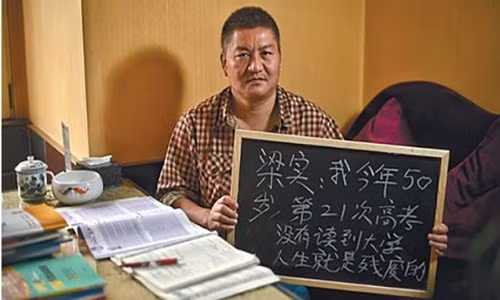 梁实，我今年50
岁，第21次高考
没有读到大学
人生就是残废的